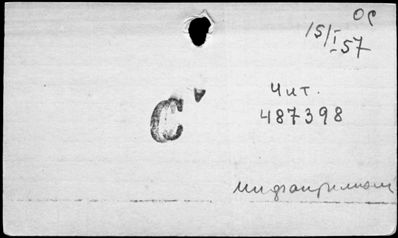 ОС
15/I-57
Чит.
487398
С